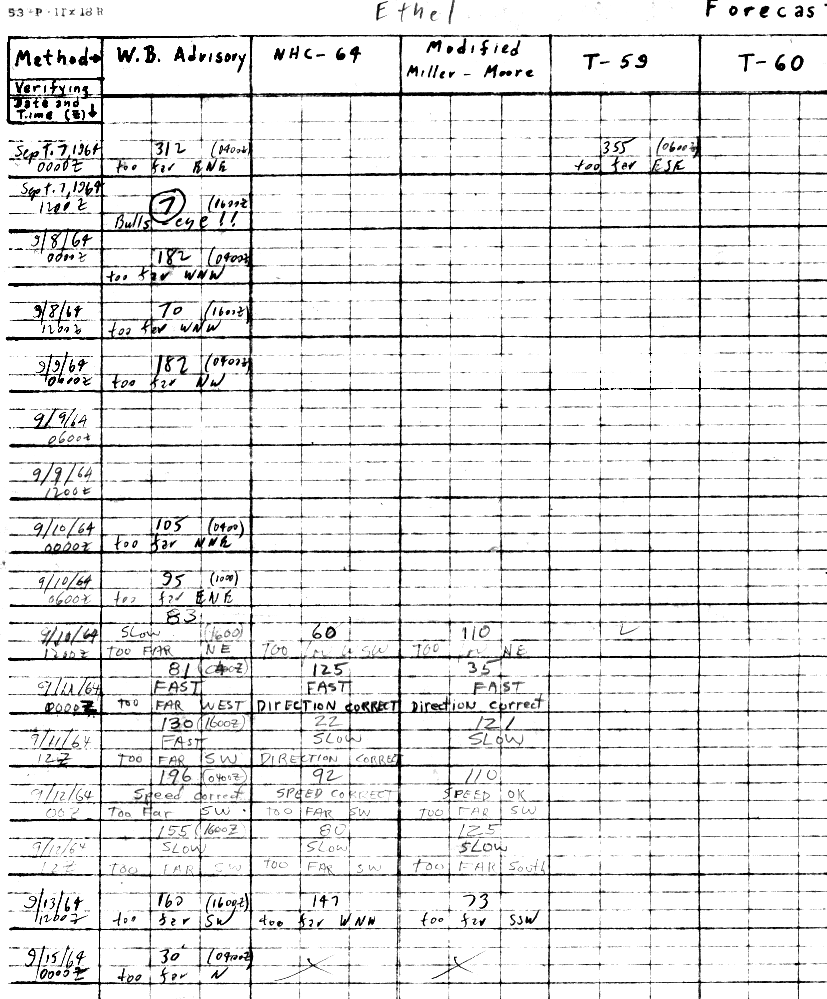 53-P-11x18R
Ethel
Forecas
Method→ W.B. Advisory NHC-64 Modified Miller-Moore T-59 T-60
Verifying
Date and
Time (Z)↓
Sept. 7, 1964 312 (0400Z) 355 (0600Z)
0000Z too far ENE too far ESE
Sept. 7, 1964
1200Z 7 (1600Z)
Bulls-eye!!
9/8/64
0000Z 182 (0400Z)
too far WNW
9/8/64 70 (1600Z)
1200Z too far WNW
9/9/64 182 (0400Z)
0000Z too far NW
9/9/64
0600Z
9/9/64
1200Z
9/10/64 105 (0400)
0000Z too far NNE
9/10/64 95 (1000)
0600Z too far ENE
83
9/10/64 SLOW (1600) 60 110
1200Z TOO FAR NE TOO SW TOO NE
81 (0400Z) 125 35
9/11/64 FAST FAST FAST
0000Z too FAR WEST DIRECTION CORRECT Direction correct
130 (1600Z) 22 121
9/11/64 FAST SLOW SLOW
12Z TOO FAR SW DIRECTION CORRECT
196 (0400Z) 92 110
9/12/64 Speed correct SPEED CORRECT SPEED OK
00Z Too Far SW. TOO FAR SW TOO FAR SW
155 (1600Z) 80 125
9/12/64 SLOW SLOW SLOW
12Z TOO FAR SW TOO FAR SW TOO FAR South
9/13/64 160 (1600Z) 147 73
1200Z too far SW too far WNW too far SSW
9/15/64 30 (0400Z)
0000Z too far N